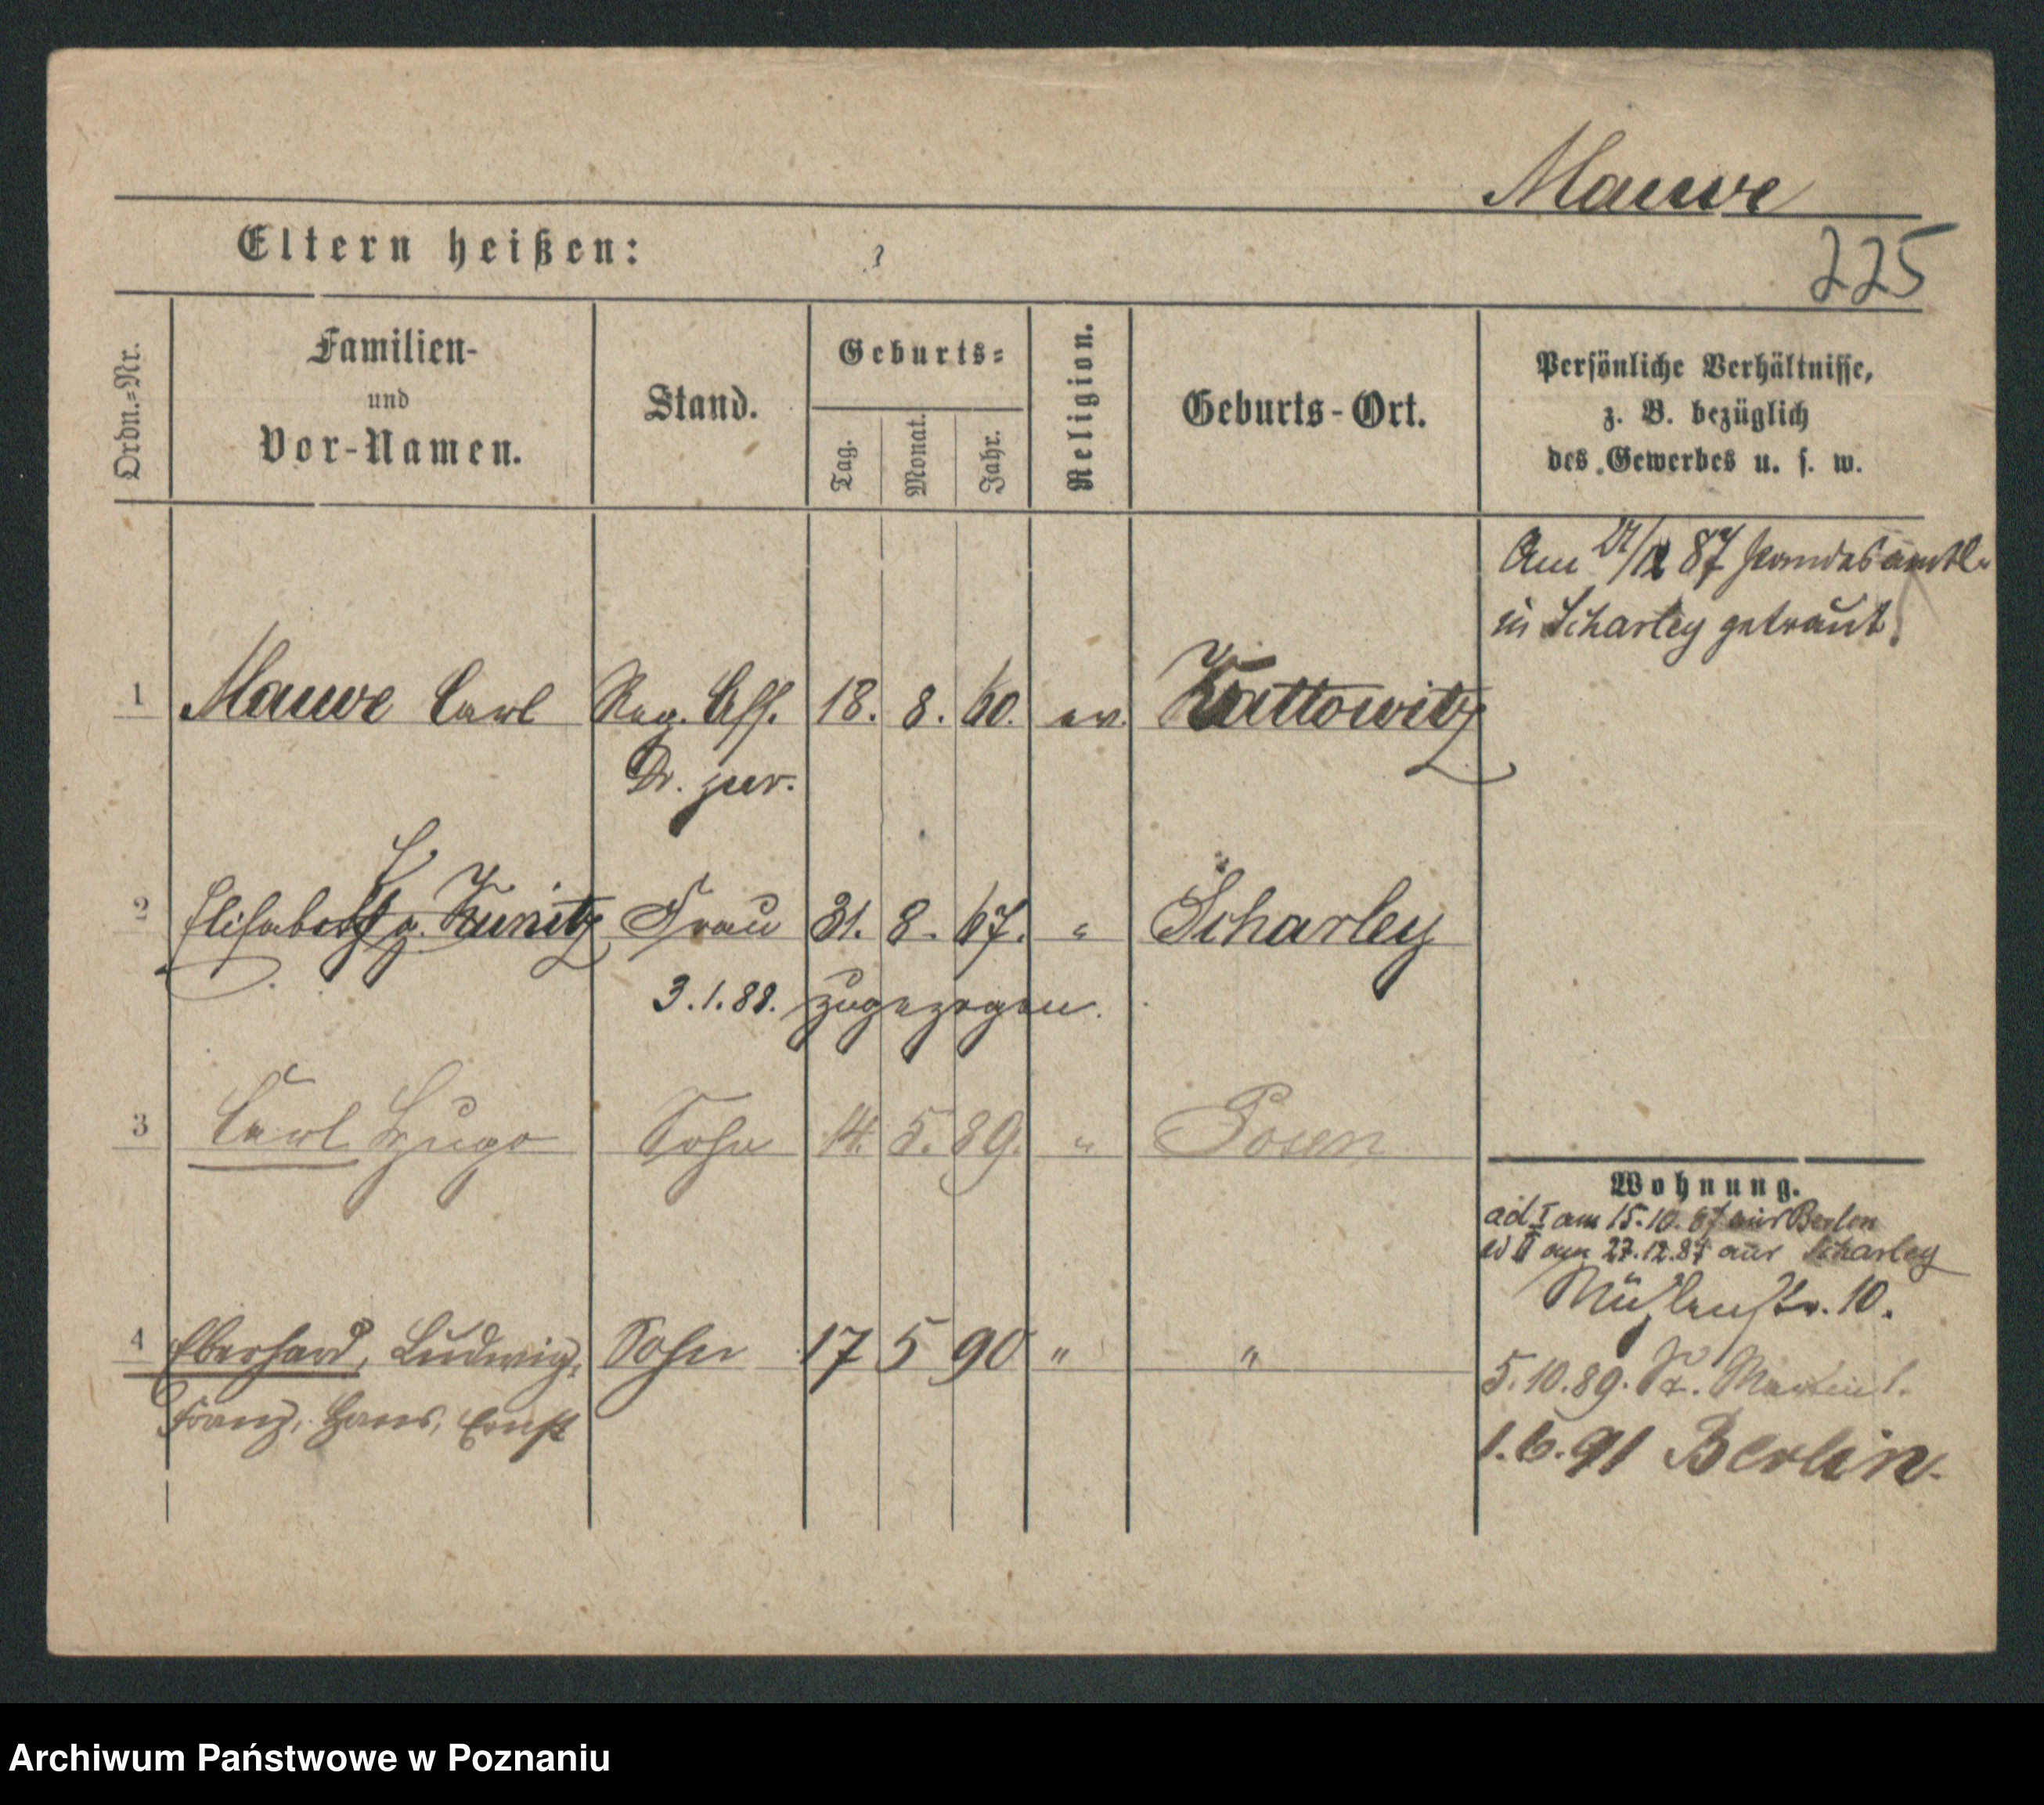 Mauwe
225
Eltern heißen: ?
Ordn.-Nr.
Familien-
und
Vor-Namen.
Stand.
Geburts-
Tag.
Monat.
Jahr.
Religion.
Geburts-Ort.
Persönliche Verhältnisse,
z. B. bezüglich
des Gewerbes u. s. w.
Am 27/12 87 standesamtl.
in Scharley getraut.
1 Mauwe Carl Reg. Ass. 18. 8. 60. ev. Kattowitz
Dr. jur.
2 Elisabeth g. Kunitz Frau 31. 8. 67. " Scharley
3.1.88. zugezogen.
3 Carl Hugo Sohn 14. 5. 89. " Posen
Wohnung.
ad I am 15.10.87 aus Berlin
ad II am 27.12.87 aus Scharley
Mühlenstr. 10.
4 Eberhard, Ludwig, Sohn 17 5 90 " "
Franz, Hans, Ernst
5.10.89. St. Martin
1.6.91 Berlin.
Archiwum Państwowe w Poznaniu